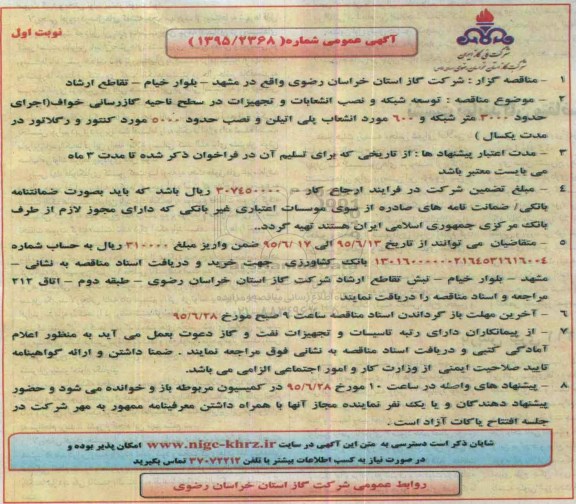 آگهی عمومی شماره( ۱۳۹۵/۲۳۶۸ )
نوبت اول
شرکت ملی گاز ایران
شرکت گاز استان خراسان رضوی
۱ - مناقصه گزار : شرکت گاز استان خراسان رضوی واقع در مشهد - بلوار خیام - تقاطع ارشاد
۲ - موضوع مناقصه : توسعه شبکه و نصب انشعابات و تجهیزات در سطح ناحیه گازرسانی خواف(اجرای
حدود ۳۰۰۰ متر شبکه و ۶۰۰ مورد انشعاب پلی اتیلن و نصب حدود ۵۰۰۰ مورد کنتور و رگلاتور در
مدت یکسال )
۳ - مدت اعتبار پیشنهاد ها : از تاریخی که برای تسلیم آن در فراخوان ذکر شده تا مدت ۳ ماه
می بایست معتبر باشد
۴ - مبلغ تضمین شرکت در فرایند ارجاع کار - ۳۰۷۴۵۰۰۰۰ ریال باشد که باید بصورت ضمانتنامه
بانکی/ ضمانت نامه های صادره از سوی موسسات اعتباری غیر بانکی که دارای مجوز لازم از طرف
بانک مرکزی جمهوری اسلامی ایران هستند تهیه گردد..
۵ - متقاضیان می توانند از تاریخ ۹۵/۶/۱۳ الی ۹۵/۶/۱۷ ضمن واریز مبلغ ۳۱۰۰۰۰ ریال به حساب شماره
بانک کشاورزی جهت خرید و دریافت اسناد مناقصه به نشانی -
مشهد - بلوار خیام - نبش تقاطع ارشاد شرکت گاز استان خراسان رضوی - طبقه دوم - اتاق ۲۱۲
مراجعه و اسناد مناقصه را دریافت نمایند.
۶ - آخرین مهلت باز گرداندن اسناد مناقصه ساعت ۹ صبح مورخ ۹۵/۶/۲۸
۷ - از پیمانکاران دارای رتبه تاسیسات و تجهیزات نفت و گاز دعوت بعمل می آید به منظور اعلام
آمادگی کتبی و دریافت اسناد مناقصه به نشانی فوق مراجعه نمایند . ضمنا داشتن و ارائه گواهینامه
تایید صلاحیت ایمنی از وزارت کار و امور اجتماعی الزامی می باشد.
۸ - پیشنهاد های واصله در ساعت ۱۰ مورخ ۹۵/۶/۲۸ در کمیسیون مربوطه باز و خوانده می شود و حضور
پیشنهاد دهندگان و یا یک نفر نماینده مجاز آنها با همراه داشتن معرفینامه ممهور به مهر شرکت در
جلسه افتتاح پاکات آزاد است .
شایان ذکر است دسترسی به متن این آگهی در سایت www.nigc-khrz.ir امکان پذیر بوده و
در صورت نیاز به کسب اطلاعات بیشتر با تلفن ۳۷۰۷۲۲۱۲ تماس بگیرید
روابط عمومی شرکت گاز استان خراسان رضوی